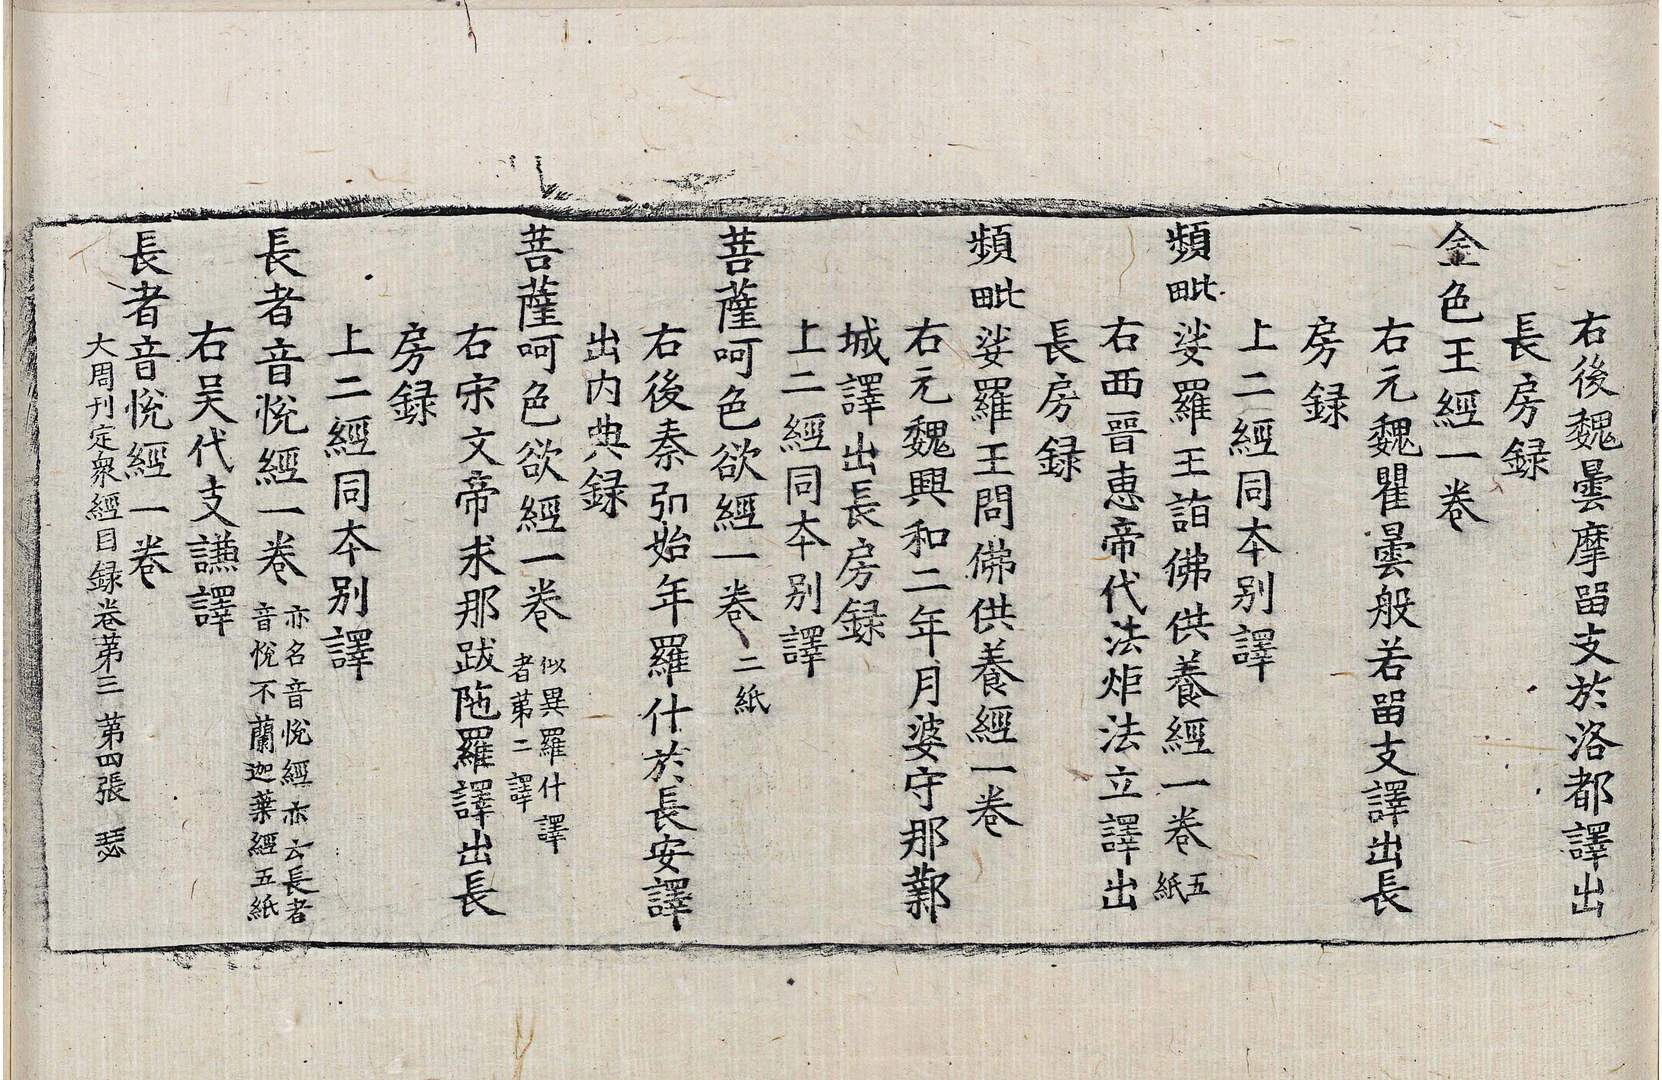 右後魏曇摩留支於洛都譯出
長房録
金色王經一卷
右元魏瞿曇般若留支譯出長
房録
上二經同本别譯
頻毗娑羅王詣佛供養經一卷 五紙
右西晉惠帝代法炬法立譯出
長房録
頻毗娑羅王問佛供養經一卷
右元魏興和二年月婆守那鄴
城譯出長房録
上二經同本别譯
菩薩呵色欲經一卷 二紙
右後秦弘始年羅什於長安譯
出内典録
菩薩呵色欲經一卷 似異羅什譯者苐二譯
右宋文帝求那跋陁羅譯出長
房録
上二經同本别譯
長者音悅經一卷 亦名音悅經亦云長者音悅不蘭迦葉經五紙
右吴代支謙譯
長者音悅經一卷
大周刊定衆經目録卷苐三 苐四張 瑟